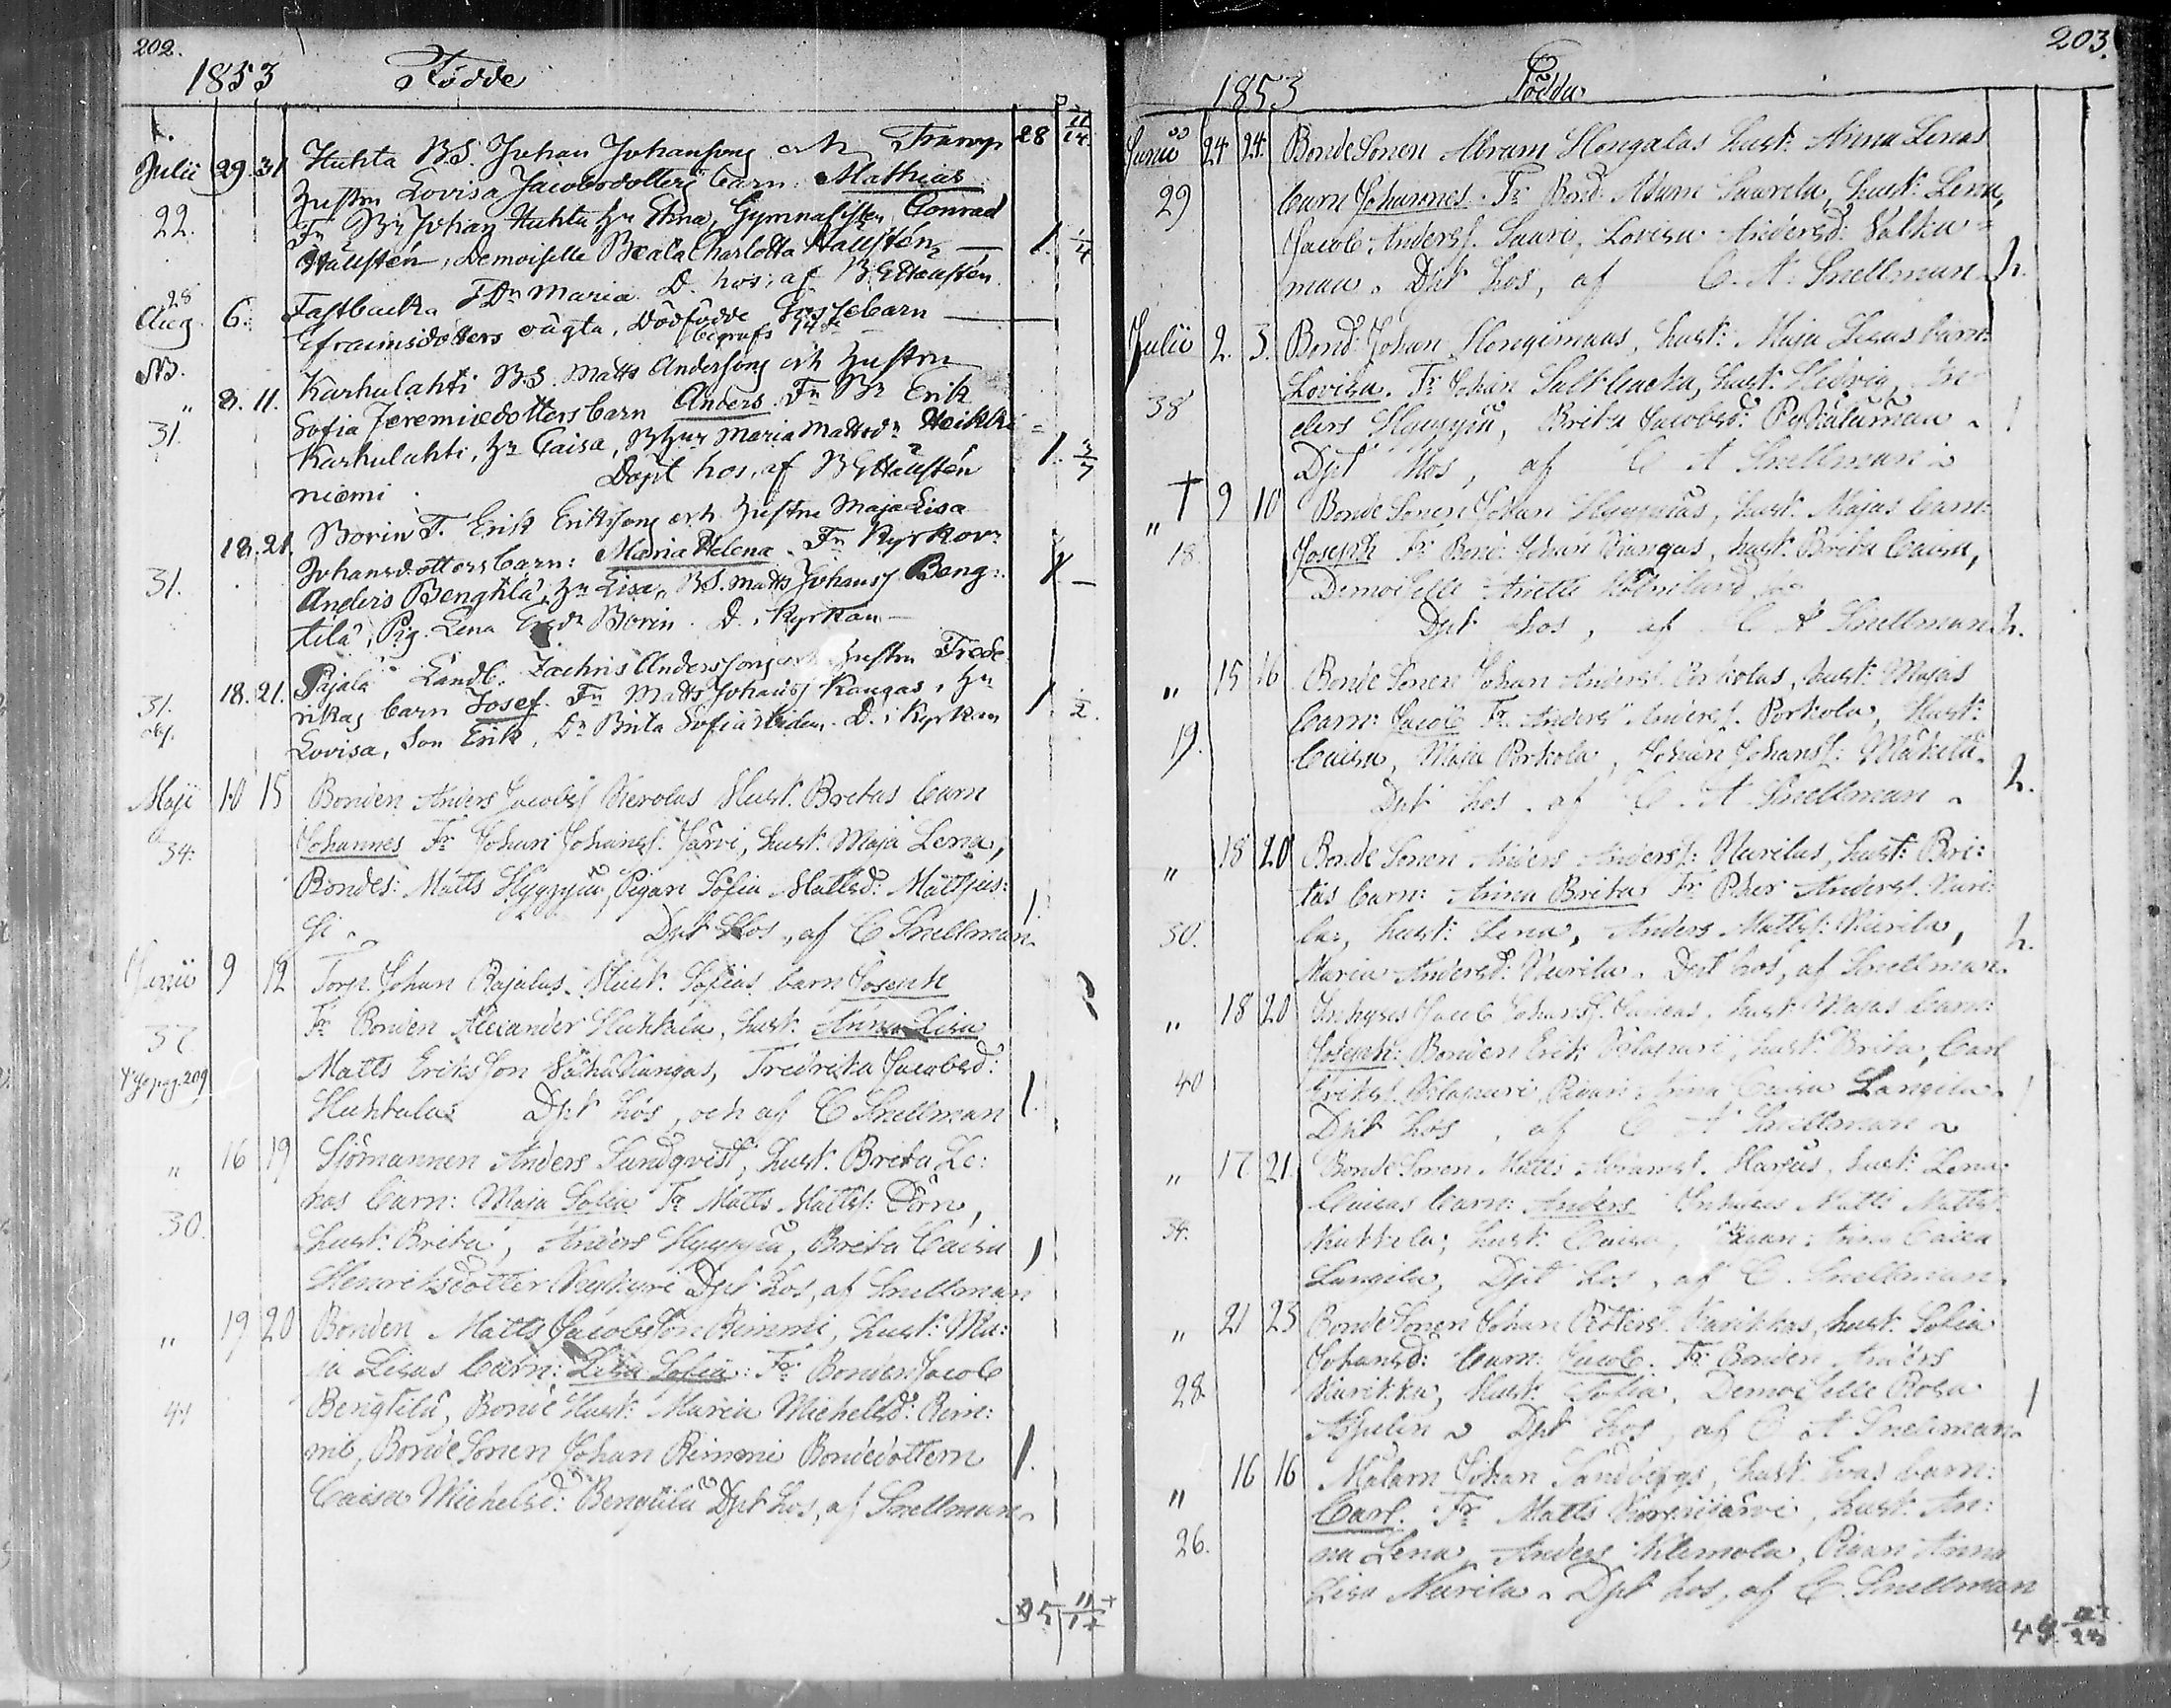 202.
1853 Födde
Julii 29. 31 Huhta BS. Johan Johansson och Transp 28 11/14
Hustru Lovisa Jacobsdotters barn: Mathias
22. Fr Br Johan Huhta, Hu Stina, Gymnasisten Conrad
Hallstén, Demoiselle Beata Charlotta Hallstén 1. 1/4
Fastbacka TDr Maria D. hos, af B E Hallstén
28
Aug. 6. Efraimsdotters oägta, Dödfödde Gossebarn
begrafs 14de
NB.
" 8. 11. Karhulahti BS. Matts Andersson och Hustru
Sofia Jeremiædotters barn Anders. Fr Br Erik
31. Karhulahti, Hu Caisa, Maria Mattsdr Heikki=
niemi Döpt hos, af B E Hallstén 1. 3/7
18. 21. Borin T. Erik Eriksson och Hustru Maja Lisa
Johansdotters barn: Maria Helena. Fr Kyrkov
31. Anders Bengtilä, Hu Lisa, BS. Matts Johanss Beng:
tilä, Pig. Lena Borin. D. i Kyrkan
18. 21. Pajala Landb. Zachris Andersson och Hustru Frede
31. rikas barn Josef. Fr Matts Johanss Kangas, Hu
Lovisa, Son Erik, Dr Brita Sofia D. i Kyrkan 1 1/2.
Maji 10 15 Bonden Anders Jacobss Hust. Britas barn
34. Johannes Fr Johan Johanss: Järvi, hust. Maja Lena,
Bondes: Matts Hyyppä, Pigan Sofia Mattsd:
Döpt hos, af C Snellman 1.
Junii 9 12 Torp. Johan Rajalas Hust. Sofias barn Joseph
37 Fr Bonden Alexander Huhtala, hust. Anna Lisa
Matts Eriksson Vähäkangas, Fredrika Jacobsd:
pag. 209
Huhtala Döpt hos, och af C Snellman 1.
" 16 19 Sjömannen Anders Sundqvist, hust. Brita Le:
nas barn: Maja Sofia Fr Matts Mattss: Dörn,
30. hust. Brita, Anders Hyyppä, Brita Caisa 1
Henriksdotter Döpt hos, af Snellman
" 19 20 Bonden Matts Jacobsson Rimmi, hust: Ma:
ja Lisas barn: Lisa Sofia: Fr Bonden Jacob
41 Bengtilä, Bonde Hust: Maria Michelsd: Rim:
mi, BondeSonen Johan Rimmi Bondedottern 1.
Caisa Michelsd: Bengtilä Döpt hos, af Snellman
35 11/14
203.
1853 Födda
Junii 24 24. BondeSonen Abram Hongalas hust. Anna Lenas
29 barn Johannes. Fr Bond. Adam Saarela, hust: Lena,
Jacob Anderss. Sauri, Lovisa Andersd: Valku=
maa. Döpt hos, af C. A. Snellman 2.
Julii 2. 3. Bond. Johan Hongimaas, hust: Maja Lisas barn:
Lovisa. Fr Johan hust: Hedvig, An=
38 ders Hyyppä, Brita Jacobsd:
Döpt hos, af C A Snellman 1
" † 9 10 BondeSonen Johan Hyyppäs, hust. Majas barn:
18. Joseph Fr Bond: Johan Kangas, hust. Brita Caisa,
Demoiselle Anette
Döpt hos, af C A Snellman 2.
" 15 16 BondeSonen Johan Anderss. Porkolas, hust. Majas
barn: Jacob Fr Anders Anderss. Porkola, Hust:
19. Caisa, Maja Porkola, Johan Johanss: Mäkelä.
Döpt hos, af C. A Snellman 2.
" 18 20 BondeSonen Anders Anderss: Nurilas, hust: Bri:
tas barn: Anna Brita Fr Pher Anderss. Nuri:
30. la, hust: Lena, Anders Mattss: Nurila, 2.
Maria Andersd: Nurila. Döpt hos, af Snellman.
" 18 20 Inhyses Jacob Johanss. hust Majas barn:
Joseph: Bonden Erik hust. Brita, Carl
40 Erikss. Pigan Anna Caisa Langila 1
Döpt hos, af C A Snellman
" 17 21. BondeSonen Matts Abramss. Harjus, hust. Lena
Caisas barn: Anders Inhyses Matts Mattss
34. hust. Caisa, Pigan: Anna Caisa
Langila, Döpt hos, af C. Snellman.
" 21 23 BondeSonen Johan Petterss. Karikkas, hust. Sofia
Johansd: barn: Jacob. Fr Bonden Anders
28. Karikka, Hust. Sofia, Demoiselle Rosa
Aspelin Döpt hos, af C A Snellman 1
" 16 16 Målarn Johan Sandbergs, hust. Evas barn:
Carl. Fr Matts Korkiajärvi, hust. An:
26. na Lena, Anders Klemola, Pigan Anna
Lisa Nurila. Döpt hos, af C. Snellman